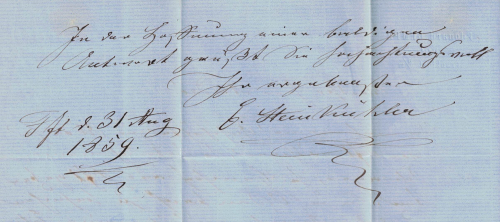 In der Hoffnung einer baldigen
Antwort grüßt Sie hochachtungsvoll
Ihr ergebenster
E. Steinkühler
Fft d. 31 Aug
1859.